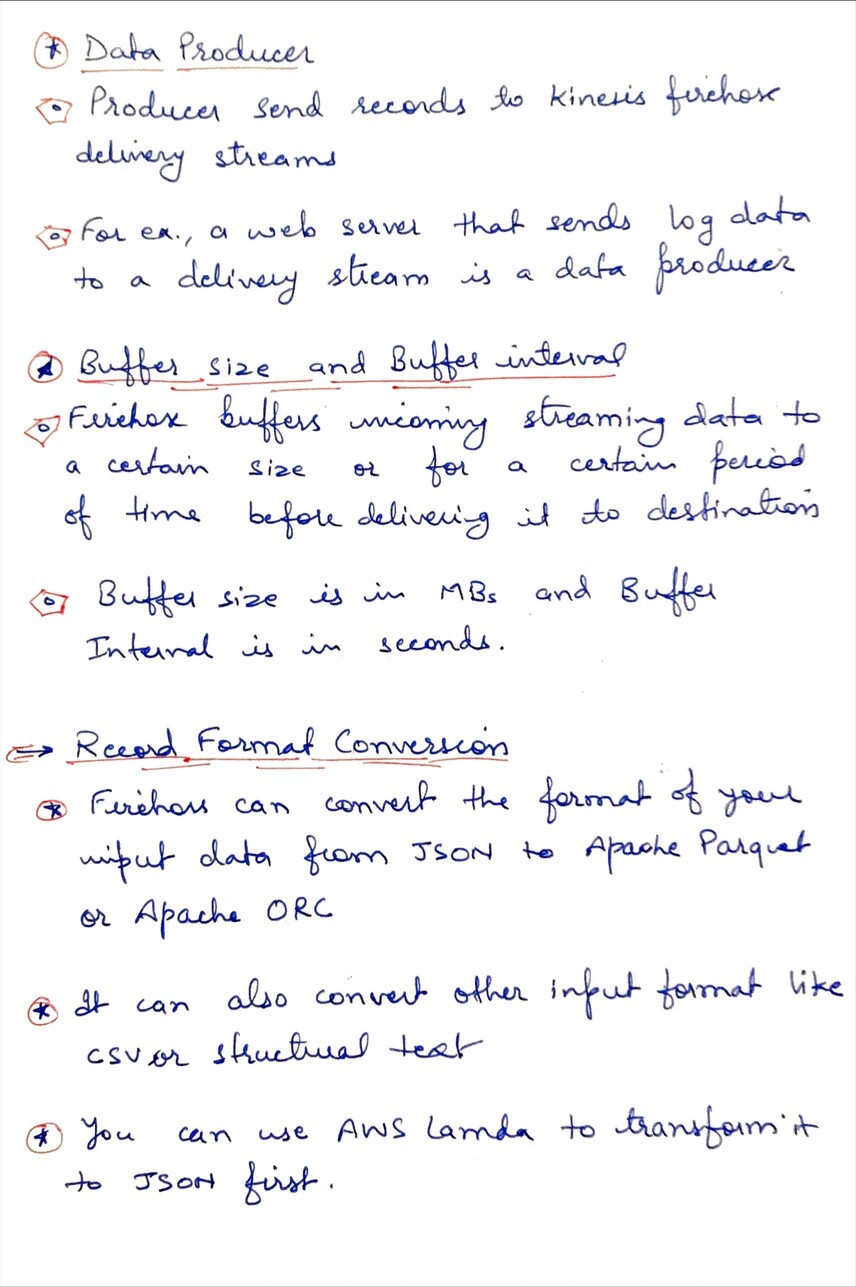 Data Producer
Producer send records to Kinesis firehose
delivery streams
For ex., a web server that sends log data
to a delivery stream is a data producer
Buffer size and Buffer interval
Firehose buffers incoming streaming data to
a certain size or for a certain period
of time before delivering it to destinations
Buffer size is in MBs and Buffer
Interval is in seconds.
⇒ Record Format Conversion
* Firehose can convert the format of your
input data from JSON to Apache Parquet
or Apache ORC
* It can also convert other input format like
CSV or structural text
* You can use AWS Lamda to transform it
to JSON first.